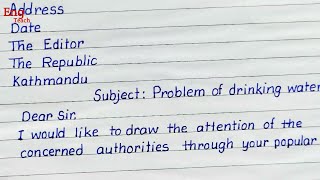 Eng
Teach
Address
Date
The Editor
The Republic
Kathmandu
Subject: Problem of drinking water
Dear Sir.
I would like to draw the attention of the
concerned authorities through your popular